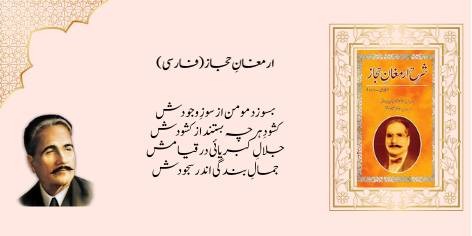 ارمغانِ حجاز (فارسی)
بسوزد مومن از سوزِ وجودش
کشود ہرچہ بستند از کشودش
جلالِ کبریائی در قیامش
جمالِ بندگی اندر سجودش
شرح ارمغان حجاز